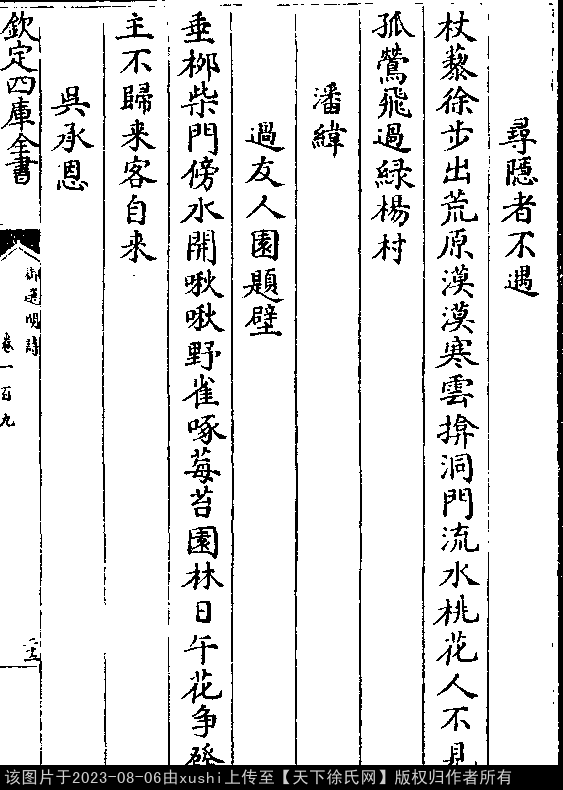 尋隱者不遇
杖藜徐步出荒原漠漠寒雲揜洞門流水桃花人不見
孤鶯飛過緑楊村
潘緯
過友人園題壁
垂柳柴門傍水開啾啾野雀啄莓苔園林日午花争發
主不歸来客自来
吳承恩
欽定四庫全書
御選明詩
卷一百九
该图片于2023-08-06由xushi上传至【天下徐氏网】版权归作者所有